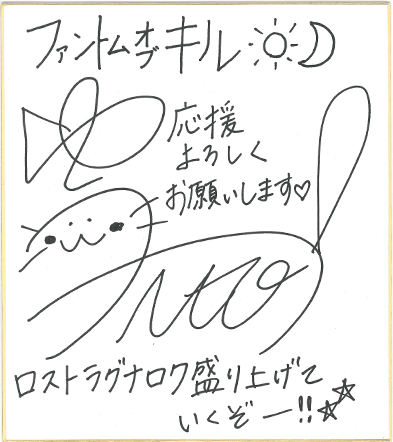 ファントムオブキル
応援
よろしく
お願いします♡
ロストラグナロク盛り上げて
いくぞー!!☆☆